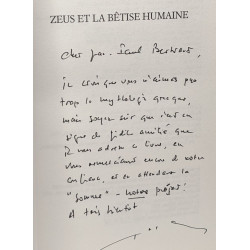 ZEUS ET LA BÊTISE HUMAINE
Cher Jean-Paul Bertrand,
je crois que vous n'aimez pas
trop la mythologie grecque,
mais soyez sûr que c'est en
signe de fidèle amitié que
je vous adresse ce livre, en
vous remerciant encore de votre
confiance, et en attendant la
"somme" - notre projet!
A très bientôt